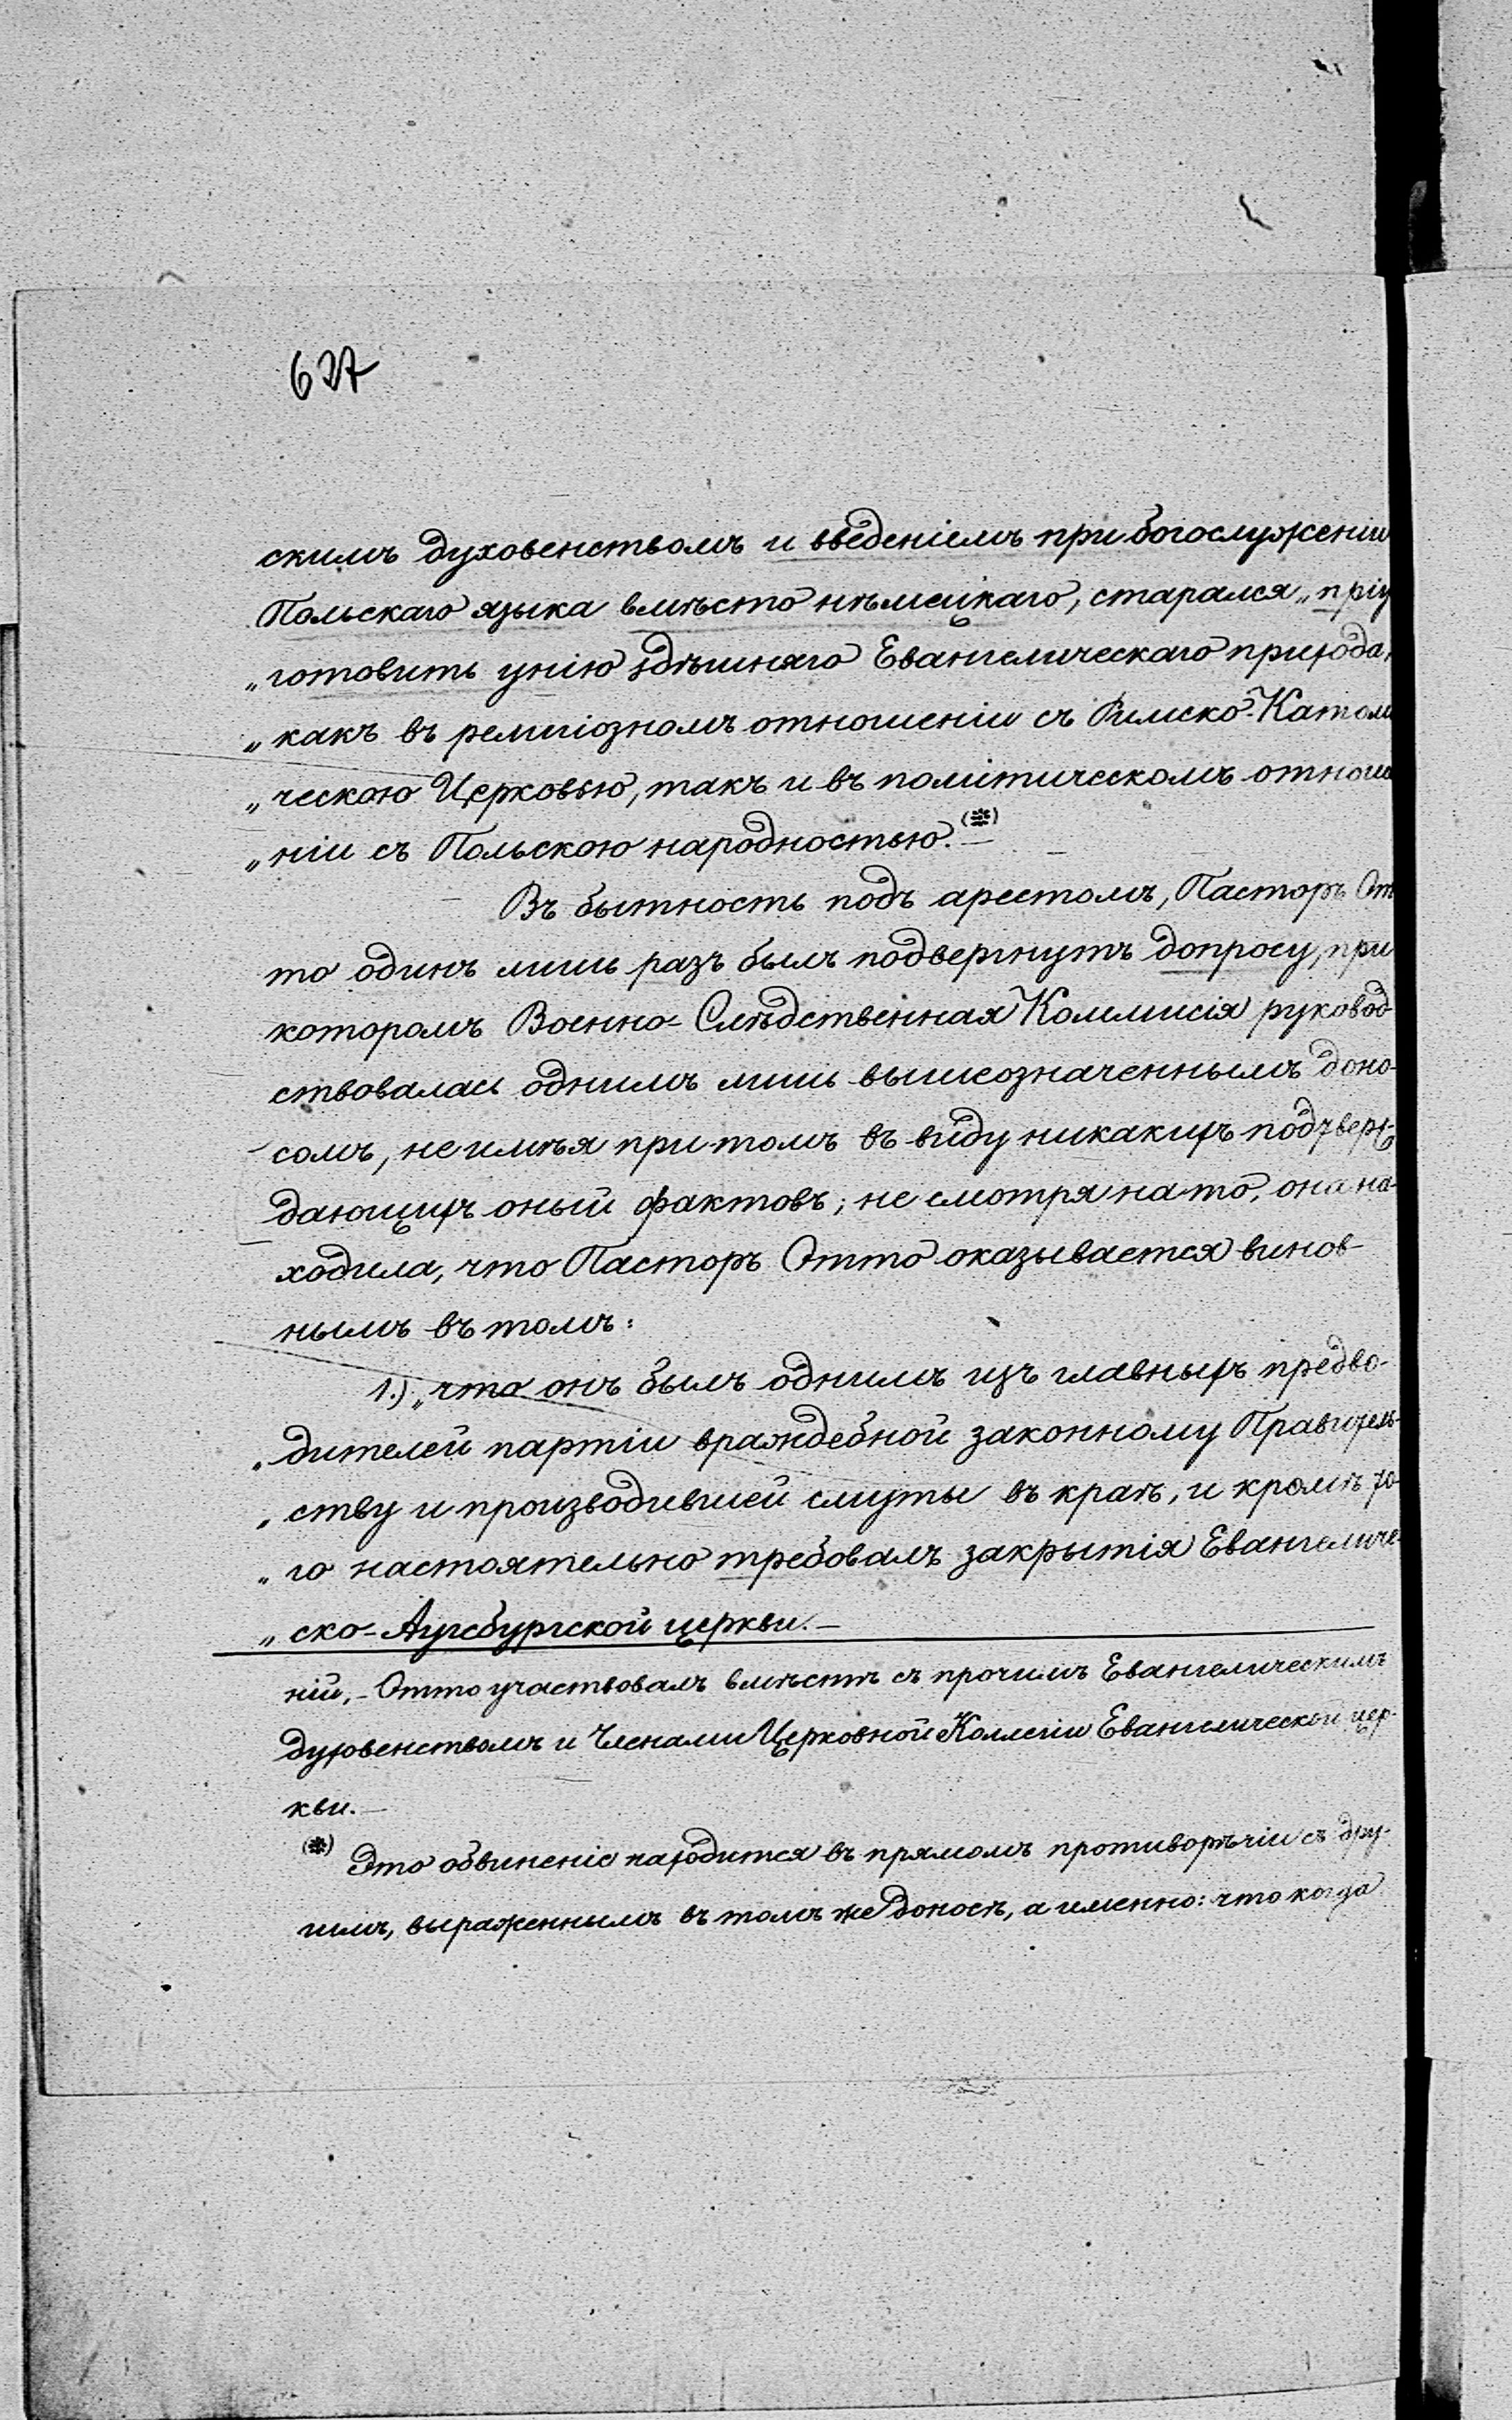 627
скимъ духовенствомъ и введеніемъ при богослуженіи
Польскаго языка вмѣсто нѣмецкаго, старался „пріу
„готовить унію здѣшняго Евангелическаго прихода,
„какъ въ религіозномъ отношеніи съ Римско-Катол
„ческою Церковью, такъ и въ политическомъ отнош
„ніи съ Польскою народностью.(*)—
Въ бытность подъ арестомъ, Пасторъ От
то одинъ лишь разъ былъ подвергнутъ допросу, при
которомъ Военно-Слѣдственная Коммисія руковод
ствовалась однимъ лишь вышеозначеннымъ доно-
сомъ, не имѣя при томъ въ виду никакихъ подтверж-
дающихъ оный фактовъ; не смотря на то, она на-
ходила, что Пасторъ Отто оказывается винов-
нымъ въ томъ:
1.) „что онъ былъ однимъ изъ главныхъ предво-
„дителей партіи враждебной законному Правитель-
„ству и производившей смуты въ краѣ, и кромѣ то-
„го настоятельно требовалъ закрытія Евангеличе-
„ско-Аугсбургской церкви.—
ній,- Отто участвовалъ вмѣстѣ съ прочимъ Евангелическимъ
духовенствомъ и Членами Церковной Коллегіи Евангелической цер-
кви.—
(*) Это обвиненіе находится въ прямомъ противорѣчіи съ дру-
гимъ, выраженнымъ въ томъ же доносѣ, а именно: что когда